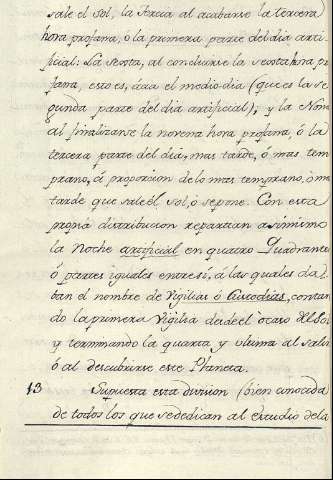 sale el Sol, la Tercia al acabarse la tercera
hora profana, ó la primera parte del dia arti-
ficial: La Sexta, al concluirse la sexta hora pro
fana, esto es, ácia el mediodia (que es la se
gunda parte del dia artificial); y la Nona
al finalizarse la novena hora profana, ó la
tercera parte del dia, mas tarde, ó mas tem
prano, á proporcion de lo mas temprano, ó mas
tarde que sale él Sol, ó se pone. Con esta
propia distribucion repartian asimismo
la Noche artificial en quatro Quadrantes
ó partes iguales entre si, á las quales da
ban el nombre de Vigilias ó Custodias, contan
do la primera Vigilia desde el ocaso del Sol
y terminando la quarta y ultima al salir
ó al descubrirse este Planeta.
13 Supuesta esta division (bien conocida
de todos los que se dedican al estudio de la